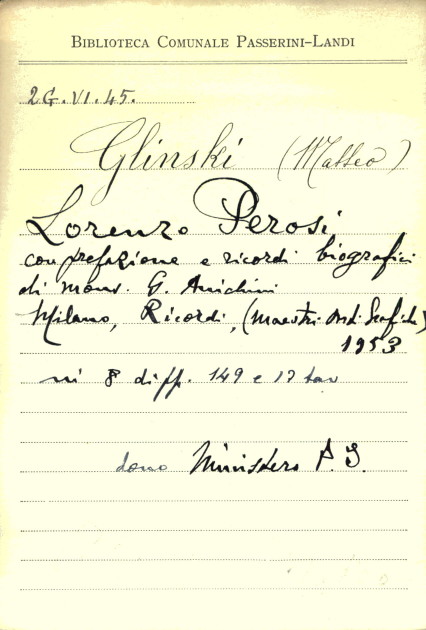 BIBLIOTECA COMUNALE PASSERINI-LANDI
2G.VI.45.
Glinski (Matteo)
Lorenzo Perosi
con prefazione e ricordi biografici
di mons. G. Anichini
Milano, Ricordi, (Maestri Ind. Grafiche)
1953
in 8 di pp. 149 e 17 tav
dono Ministero P. I.